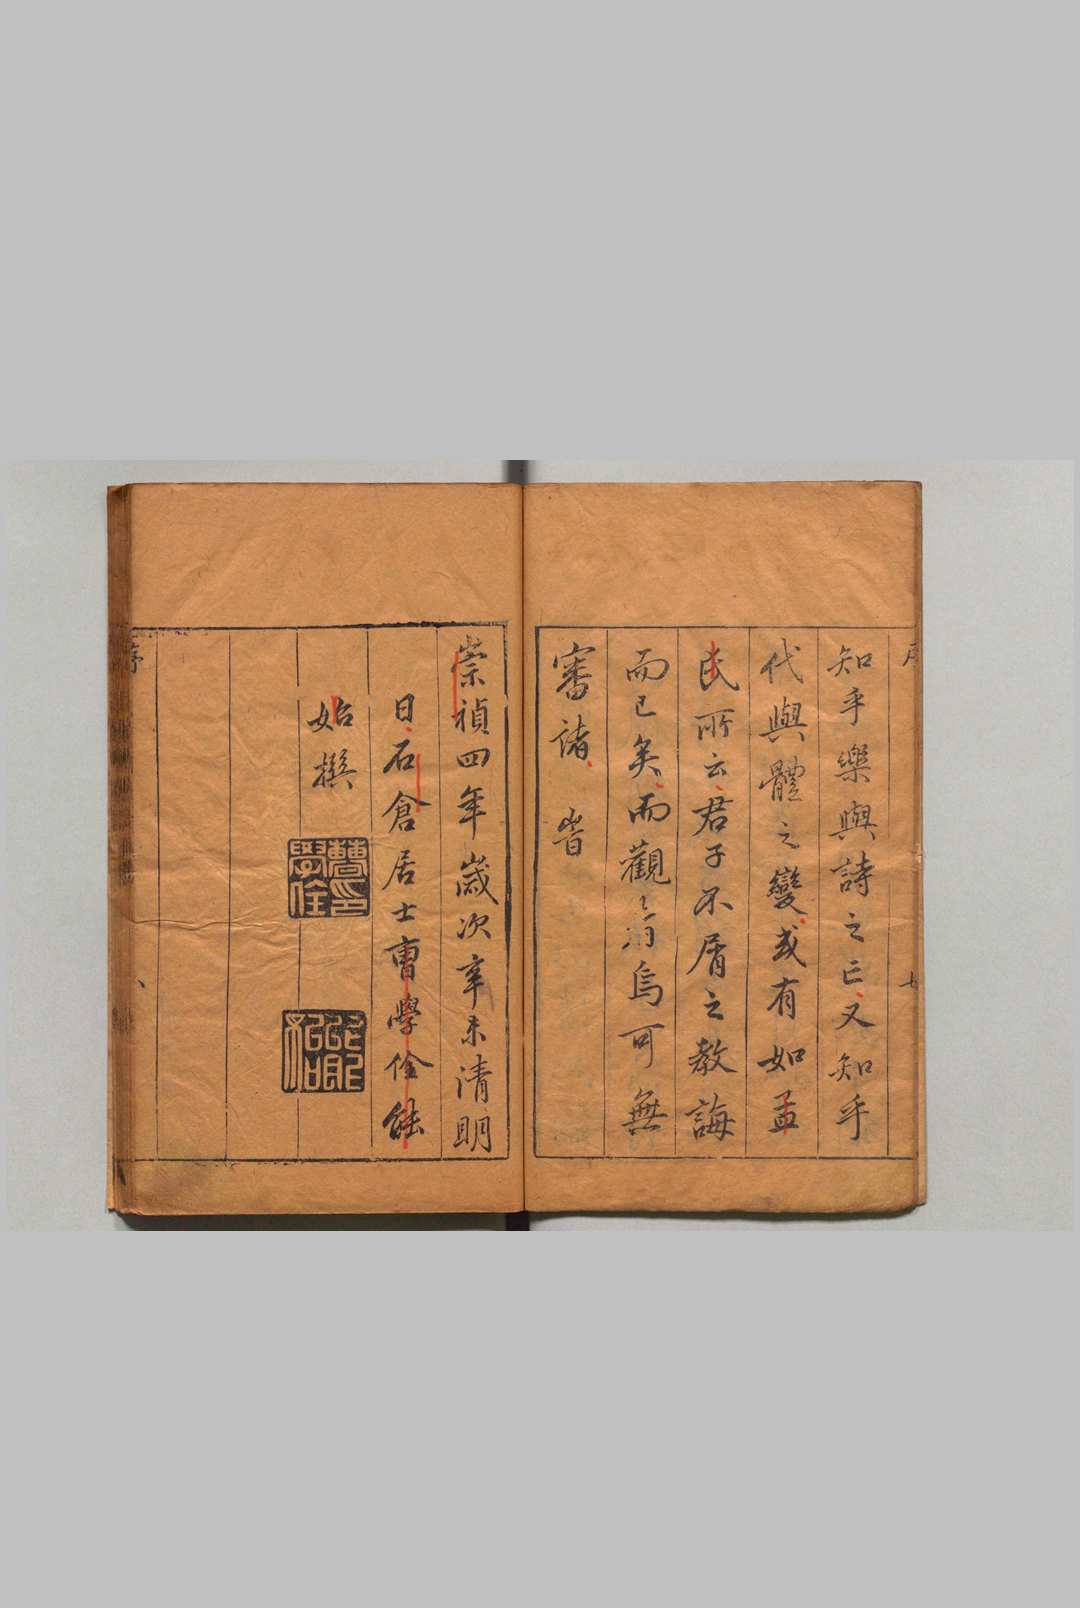 知乎樂與詩之亡又知乎
代與體之變或有如孟
氏所云君子不屑之教誨
而已矣而觀之者烏可無
審諸 時
崇禎四年歲次辛未清明
日石倉居士曹學佺能
始撰
曹印學佺
序